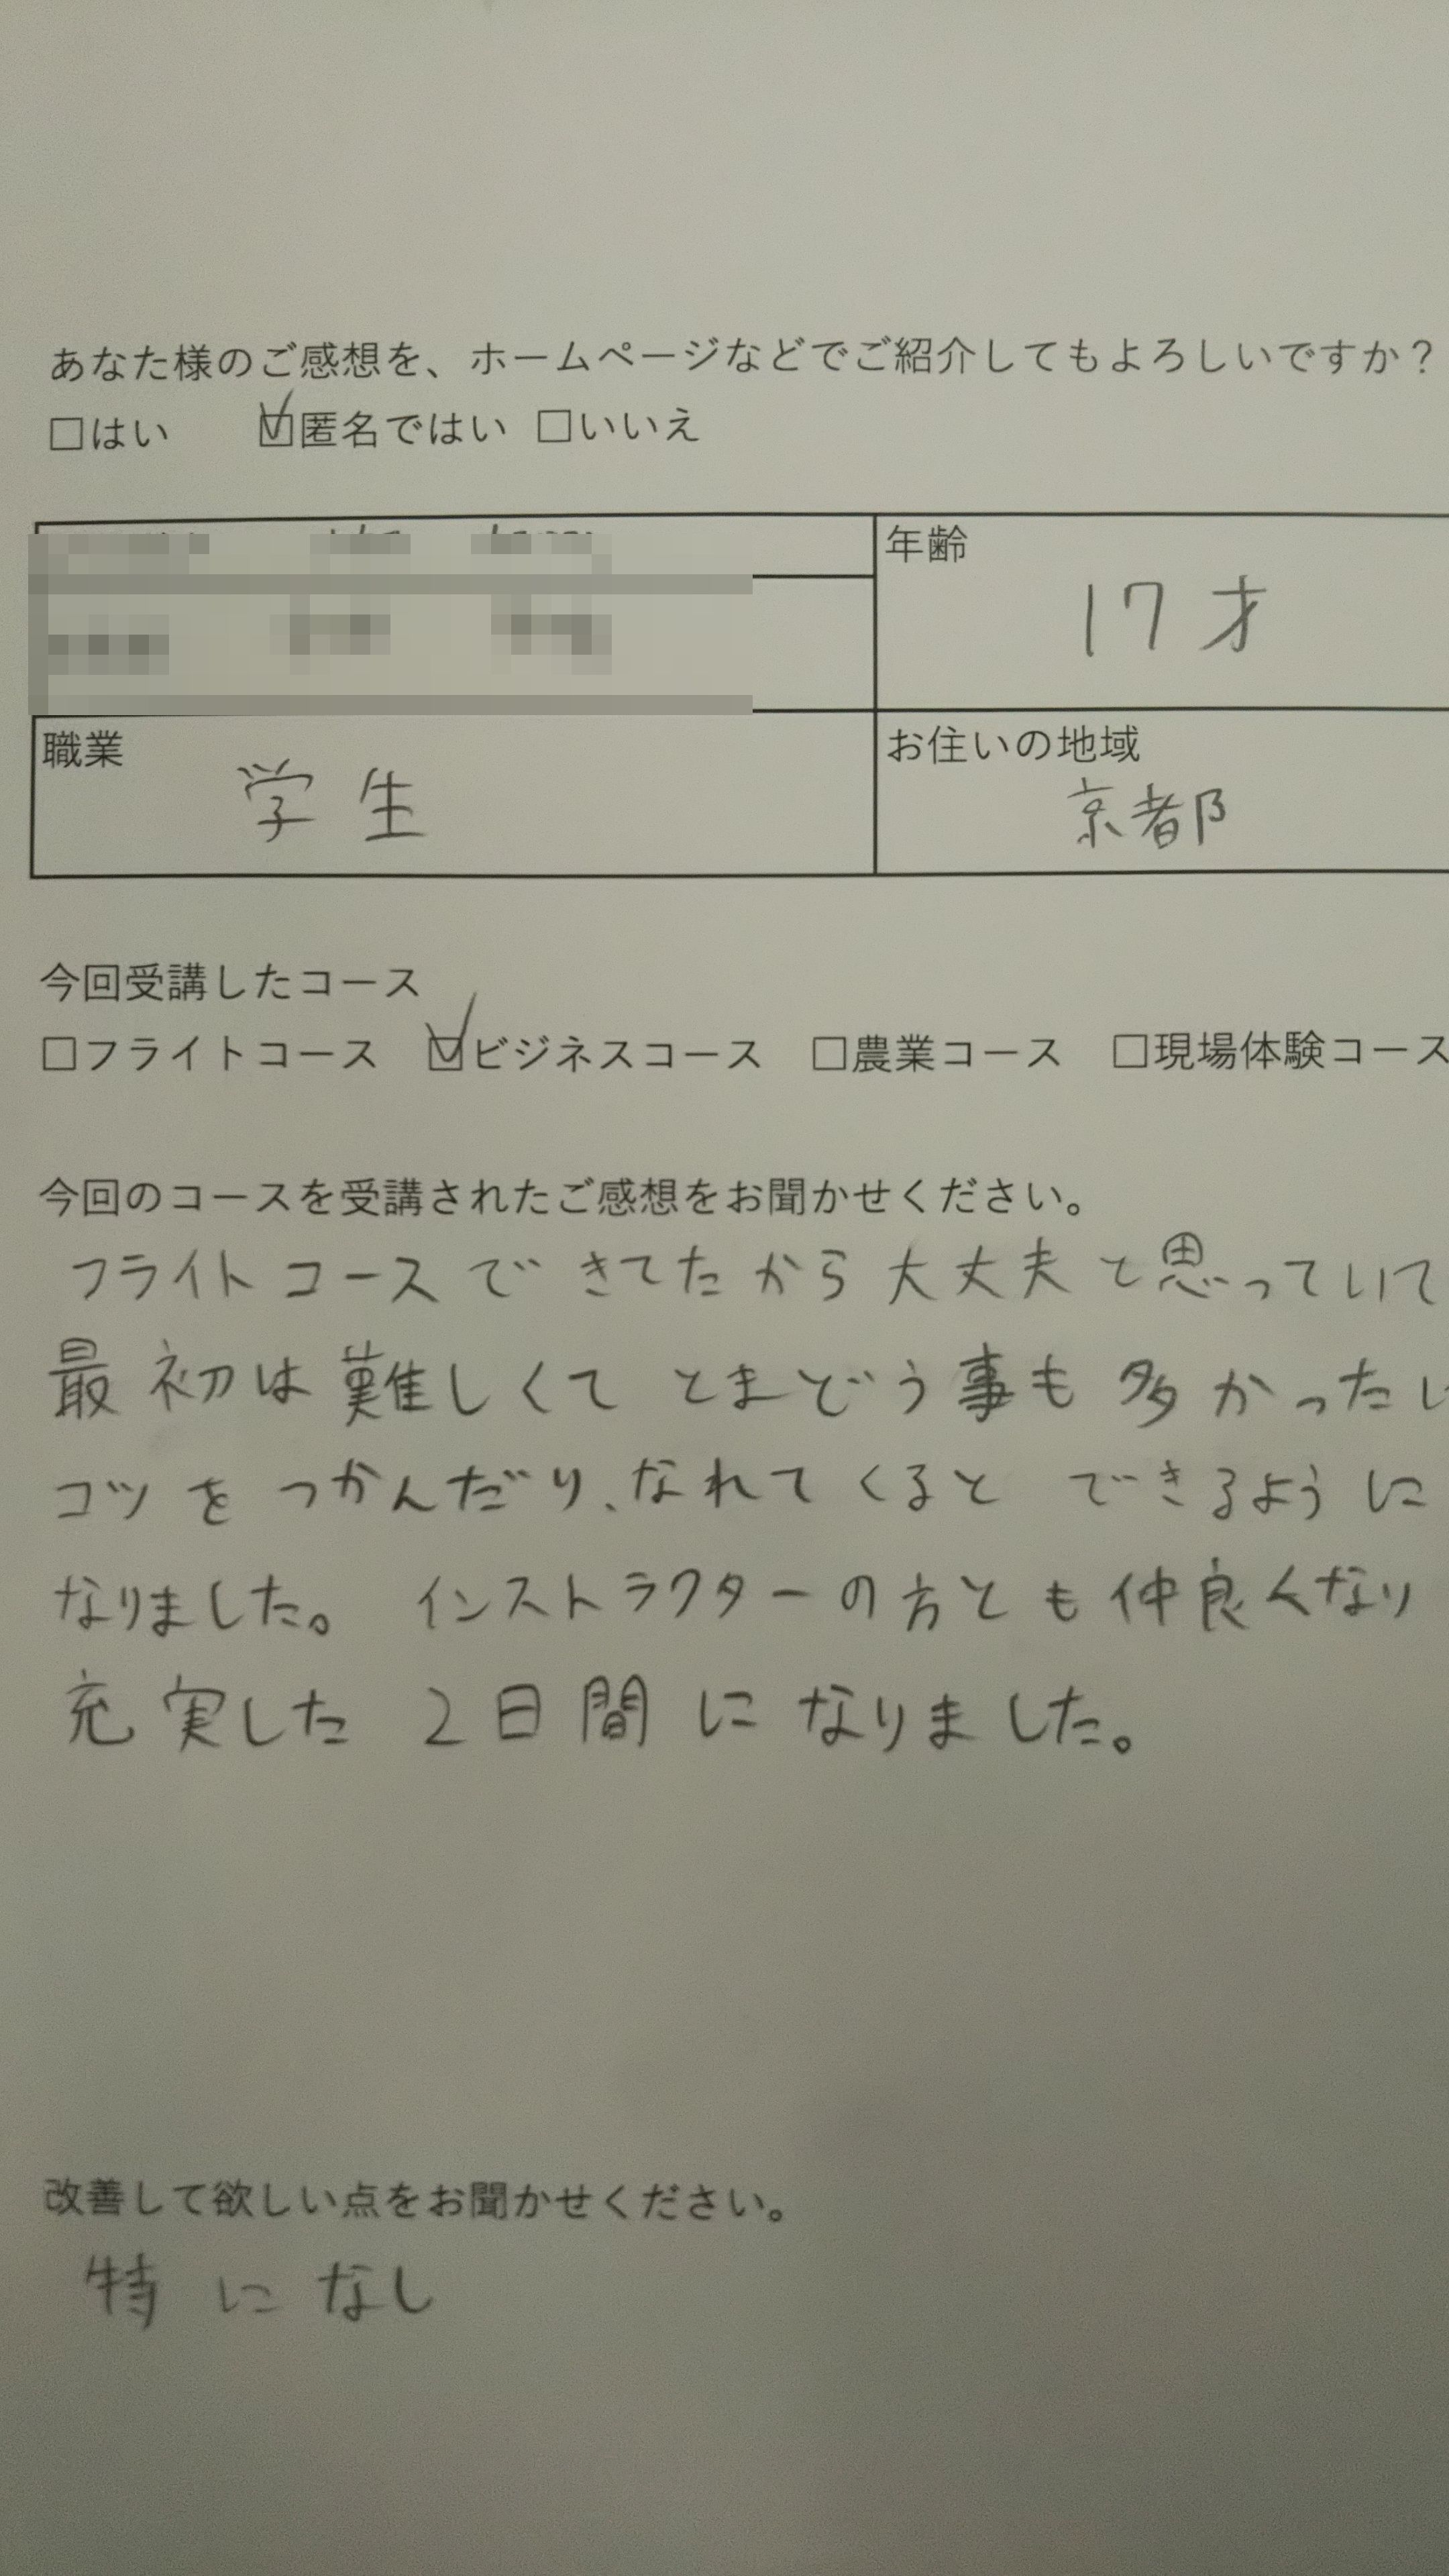 あなた様のご感想を、ホームページなどでご紹介してもよろしいですか？
□はい ☑匿名ではい □いいえ
年齢
17才
職業
学生
お住いの地域
京都
今回受講したコース
□フライトコース ☑ビジネスコース □農業コース □現場体験コース
今回のコースを受講されたご感想をお聞かせください。
フライトコースできてたから大丈夫と思っていて
最初は難しくてとまどう事も多かった
コツをつかんだり、なれてくるとできるように
なりました。インストラクターの方とも仲良くなり
充実した2日間になりました。
改善して欲しい点をお聞かせください。
特になし